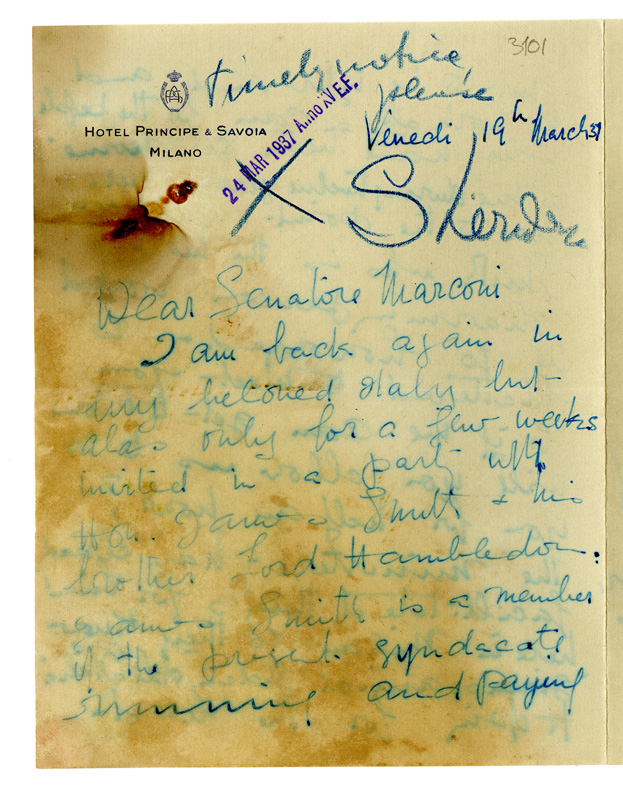 3101
Timely notice
please
HOTEL PRINCIPE & SAVOIA
MILANO
24 MAR 1937 Anno XV E.F.
Venedi 19th March 37
X
Dear Senatore Marconi
I am back again in
my beloved Italy but
alas only for a few weeks
invited in a party with
Hon. James Smith & his
brother Lord Hambledon.
James Smith is a member
of the present syndacate
running and paying